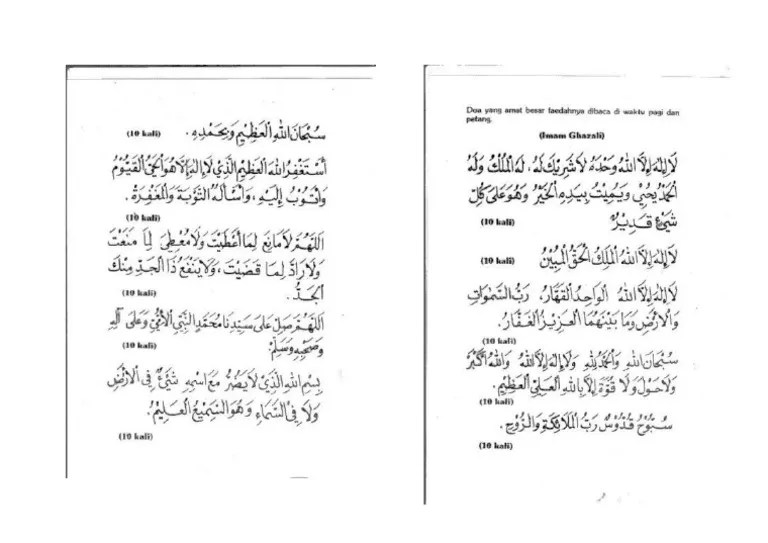 سُبْحَانَ اللهِ الْعَظِيْمِ وَبِحَمْدِهِ.
(10 kali)
أَسْتَغْفِرُ اللهَ الْعَظِيْمَ الَّذِيْ لَا إِلٰهَ إِلَّا هُوَ الْحَيُّ الْقَيُّوْمُ
وَأَتُوْبُ إِلَيْهِ، وَأَسْأَلُهُ التَّوْبَةَ وَالْمَغْفِرَةَ.
(10 kali)
اَللّٰهُمَّ لَا مَانِعَ لِمَا أَعْطَيْتَ وَلَا مُعْطِيَ لِمَا مَنَعْتَ
وَلَا رَادَّ لِمَا قَضَيْتَ، وَلَا يَنْفَعُ ذَا الْجَدِّ مِنْكَ
الْجَدُّ.
(10 kali)
اَللّٰهُمَّ صَلِّ عَلَى سَيِّدِنَا مُحَمَّدٍ النَّبِيِّ الْأُمِّيِّ وَعَلَى آلِهِ
وَصَحْبِهِ وَسَلِّمْ.
(10 kali)
بِسْمِ اللهِ الَّذِيْ لَا يَضُرُّ مَعَ اسْمِهِ شَيْءٌ فِى الْأَرْضِ
وَلَا فِى السَّمَاءِ وَهُوَ السَّمِيْعُ الْعَلِيْمُ.
(10 kali)
Doa yang amat besar faedahnya dibaca di waktu pagi dan
petang.
(Imam Ghazali)
لَا إِلٰهَ إِلَّا اللهُ وَحْدَهُ لَا شَرِيْكَ لَهُ، لَهُ الْمُلْكُ وَلَهُ
الْحَمْدُ يُحْيِيْ وَيُمِيْتُ بِيَدِهِ الْخَيْرُ وَهُوَ عَلَى كُلِّ
شَيْءٍ قَدِيْرٌ
(10 kali)
لَا إِلٰهَ إِلَّا اللهُ الْمَلِكُ الْحَقُّ الْمُبِيْنُ
(10 kali)
لَا إِلٰهَ إِلَّا اللهُ الْوَاحِدُ الْقَهَّارُ، رَبُّ السَّمٰوَاتِ
وَالْأَرْضِ وَمَا بَيْنَهُمَا الْعَزِيْزُ الْغَفَّارُ.
(10 kali)
سُبْحَانَ اللهِ وَالْحَمْدُ لِلهِ وَلَا إِلٰهَ إِلَّا اللهُ وَاللهُ أَكْبَرُ
وَلَا حَوْلَ وَلَا قُوَّةَ إِلَّا بِاللهِ الْعَلِيِّ الْعَظِيْمِ.
(10 kali)
سُبُّوْحٌ قُدُّوْسٌ رَبُّ الْمَلَائِكَةِ وَالرُّوْحِ.
(10 kali)